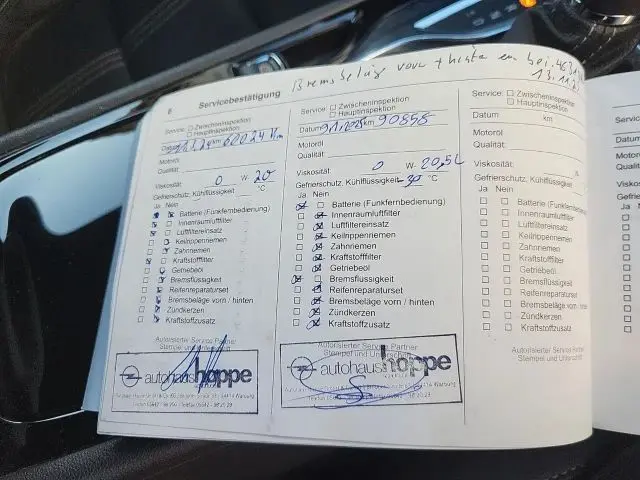 Bremsbeläg vorn + hinten en bei
13.11.
6 Servicebestätigung
Service: □ Zwischeninspektion
□ Hauptinspektion
Datum km 62024 Km
Motoröl
Qualität:
Viskosität: 0 W- 20
Gefrierschutz, Kühlflüssigkeit °C
Ja Nein
Batterie (Funkfernbedienung)
Innenraumluftfilter
Luftfiltereinsatz
Keilrippenriemen
Zahnriemen
Kraftstofffilter
Getriebeöl
Bremsflüssigkeit
Reifenreparaturset
Bremsbeläge vorn / hinten
Zündkerzen
Kraftstoffzusatz
Autorisierter Service Partner
Stempel und Unterschrift
autohaus hoppe
34414 Warburg
Service: □ Zwischeninspektion
□ Hauptinspektion
Datum 9.1.2025 km 90858
Motoröl
Qualität:
Viskosität: 0 W- 20,5L
Gefrierschutz, Kühlflüssigkeit -30 °C
Ja Nein
Batterie (Funkfernbedienung)
Innenraumluftfilter
Luftfiltereinsatz
Keilrippenriemen
Zahnriemen
Kraftstofffilter
Getriebeöl
Bremsflüssigkeit
Reifenreparaturset
Bremsbeläge vorn / hinten
Zündkerzen
Kraftstoffzusatz
Autorisierter Service Partner
Stempel und Unterschrift
autohaus hoppe
34414 Warburg
Service: □ Zwischeninspektion
□ Hauptinspektion
Datum km
Motoröl
Qualität:
Viskosität: W-
Gefrierschutz, Kühlflüssigkeit °C
Ja Nein
Batterie (Funkfernbedienung)
Innenraumluftfilter
Luftfiltereinsatz
Keilrippenriemen
Zahnriemen
Kraftstofffilter
Getriebeöl
Bremsflüssigkeit
Reifenreparaturset
Bremsbeläge vorn / hinten
Zündkerzen
Kraftstoffzusatz
Autorisierter Service Partner
Stempel und Unterschrift
Service:
Datum
Motoröl
Qualität:
Viskosität:
Ja